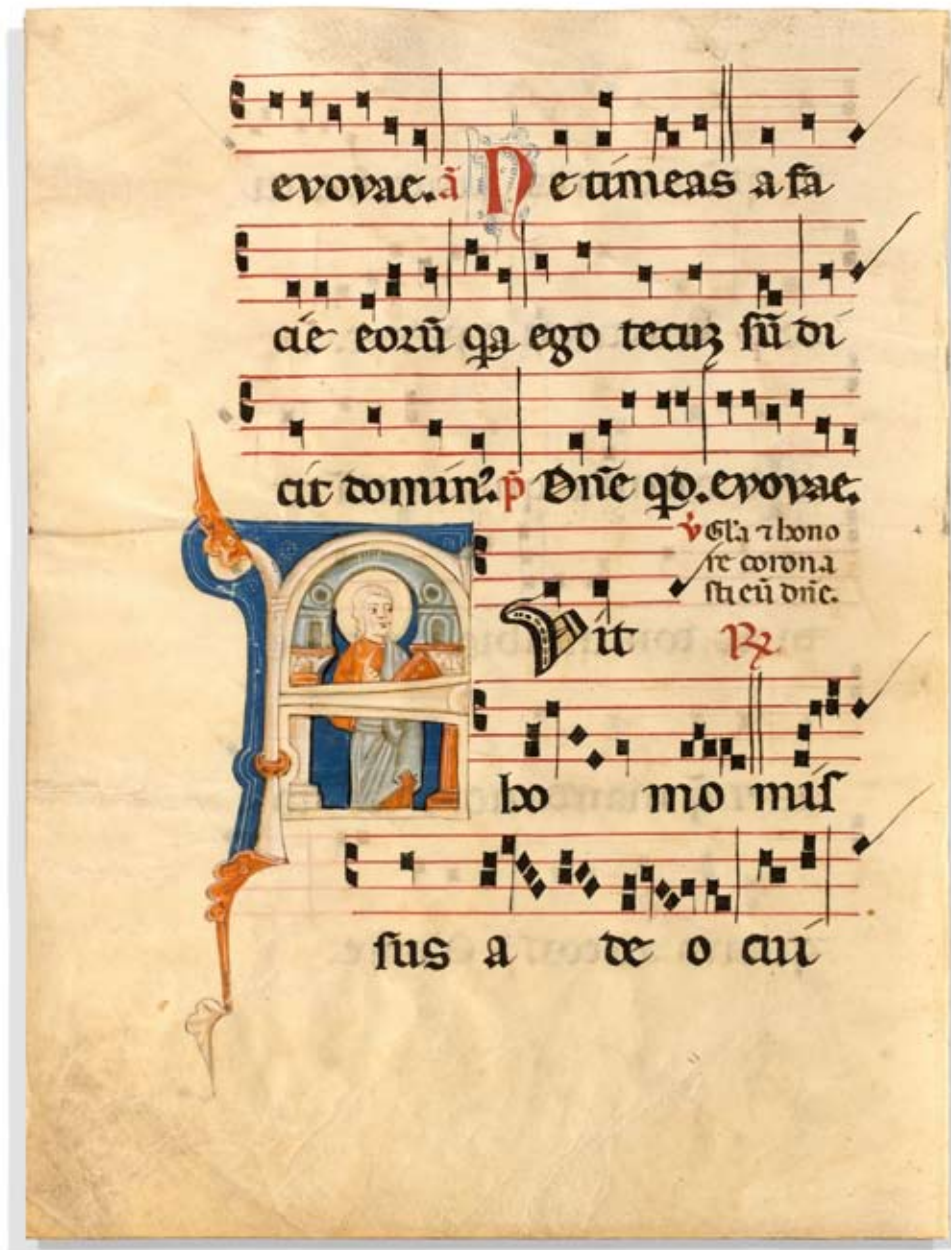 evovae. ā Ne timeas a fa
cie eorū qa ego tecuz sū di
cit domin9. p̄ Dn̄e qd. evovae.
v̇ Gl'a ⁊ hono
re corona
sti eū dn̄e.
Fuit ℟
ho mo mis
sus a de o cui